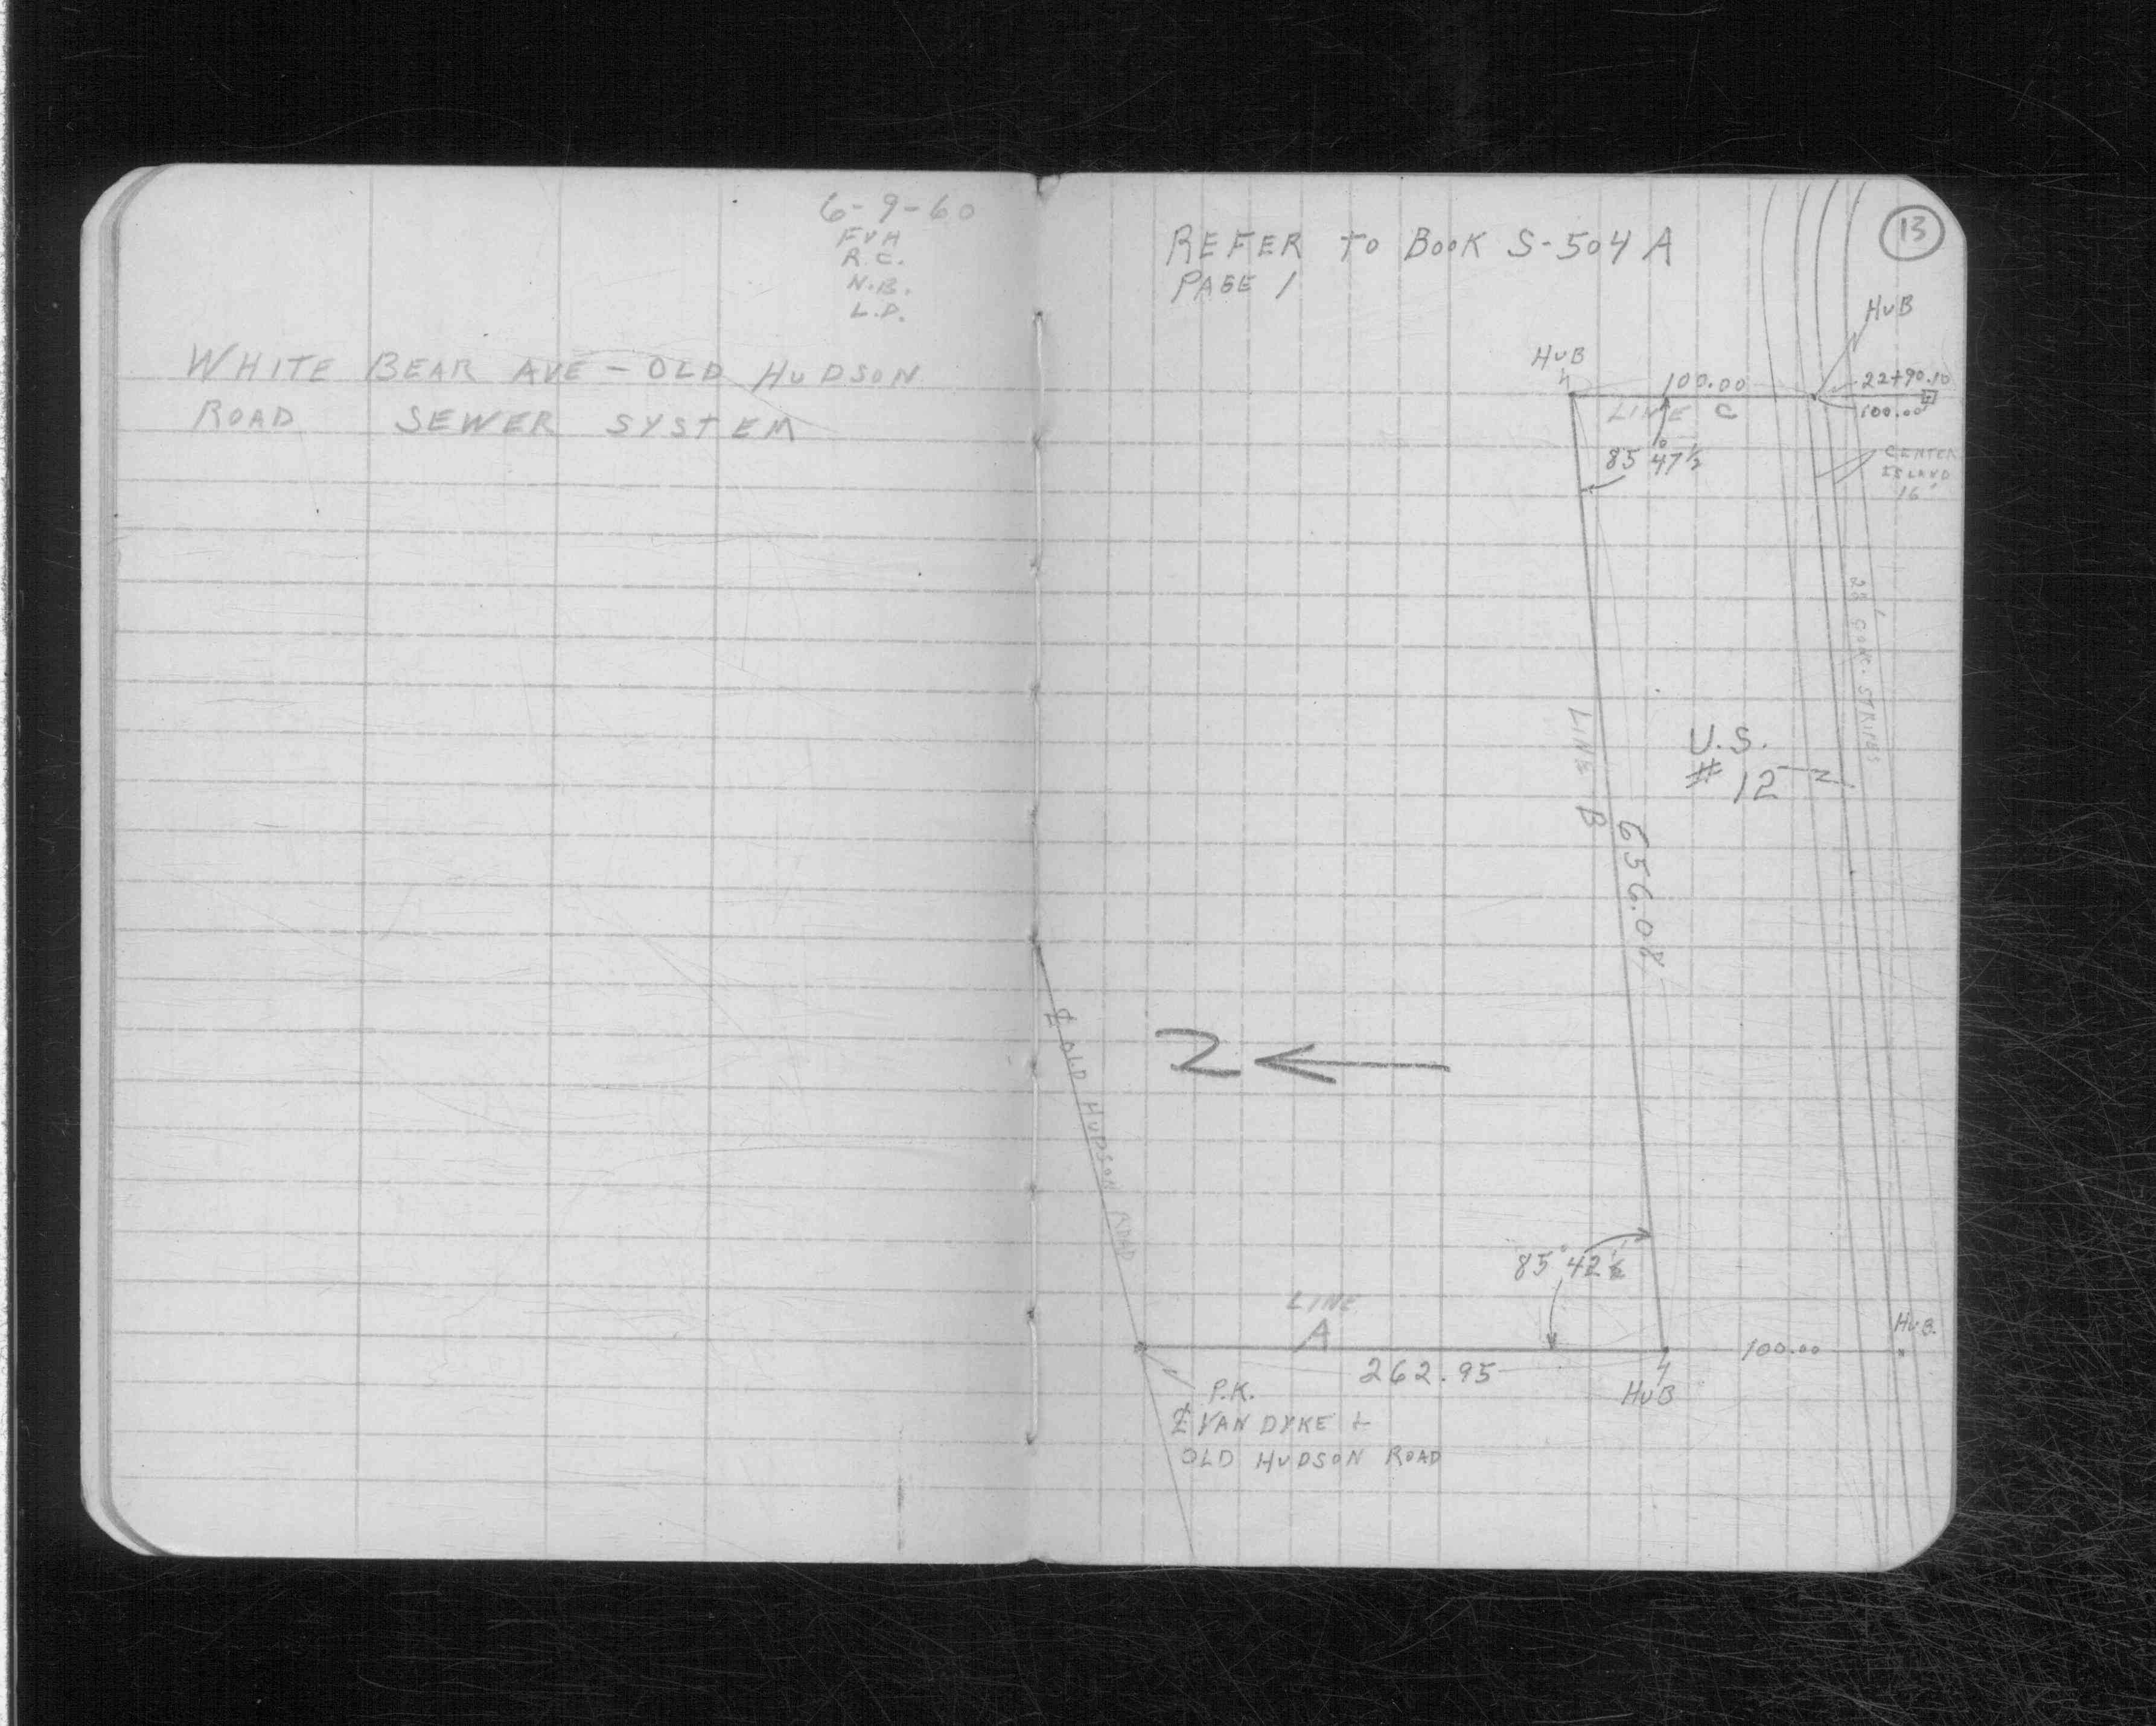 6-9-60
FVH
R.C.
N.B.
L.P.
WHITE BEAR AVE - OLD HUDSON
ROAD SEWER SYSTEM
13
REFER TO BOOK S-504 A
PAGE 1
HUB
HUB
100.00
22+90.10
LINE C
100.00
85° 47½
CENTER
ISLAND
16'
28'
LINE B
U.S.
# 12
656.08
N
℄ OLD HUDSON ROAD
85° 42½'
LINE
A
262.95
100.00
HUB
HUB
P.K.
℄ VAN DYKE +
OLD HUDSON ROAD